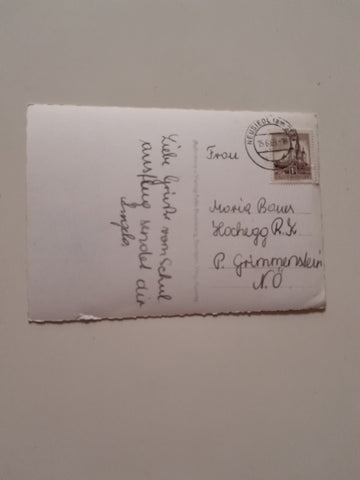 Liebe Grüße vom Schul
ausflug sendet dir
NEUSIEDL
Frau
Maria Bauer
Hochegg
P. Grimmenstein
N.Ö.